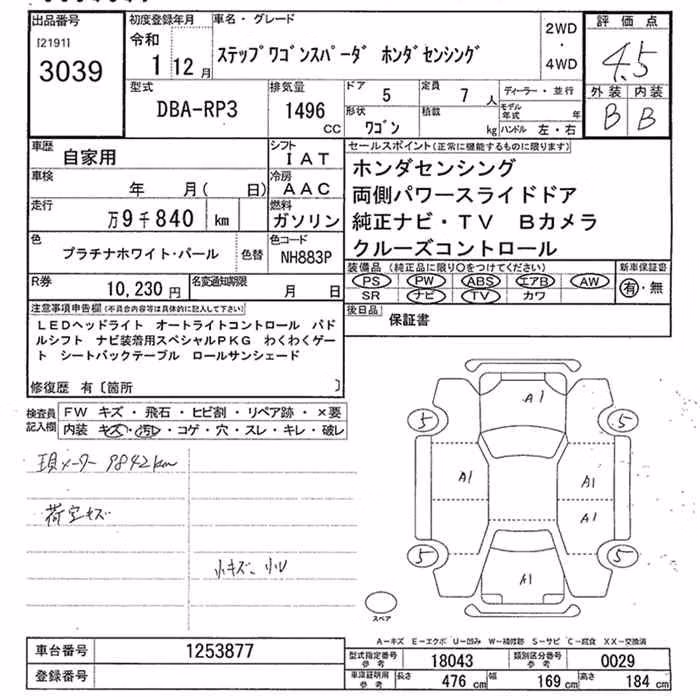 出品番号
[2191]
3039
初度登録年月
令和
1 12 月
車名・グレード
ステップワゴンスパーダ ホンダセンシング
2WD
・
4WD
評価点
4.5
外装 内装
B B
型式
DBA-RP3
排気量
1496
CC
ドア
5
定員
7 人
形状
ワゴン
積載
kg
ディーラー・並行
モデル年式 年
ハンドル 左・右
車歴
自家用
シフト
IAT
車検
年 月( 日)
冷房
AAC
走行
万9千840 km
燃料
ガソリン
色
プラチナホワイト・パール
色替
色コード
NH883P
R券
10,230 円
名変通知期限
月 日
セールスポイント(正常に機能するものに限ります)
ホンダセンシング
両側パワースライドドア
純正ナビ・TV Bカメラ
クルーズコントロール
装備品(純正品に限り○をつけてください)
PS PW ABS エアB AW
SR ナビ TV カワ
新車保証書
有・無
後日品
保証書
注意事項申告欄(不具合内容等は具体的に記入して下さい)
LEDヘッドライト オートライトコントロール パド
ルシフト ナビ装着用スペシャルPKG わくわくゲー
ト シートバックテーブル ロールサンシェード
修復歴 有〔箇所 〕
検査員
記入欄
FW キズ・飛石・ヒビ割・リペア跡・×要
内装 キズ・汚レ・コゲ・穴・スレ・キレ・破レ
現メーター 9842km
荷室キズ
小キズ、小U
A1
5 5
A1 A1
A1
5 5
A1
スペア
A−キズ E−エクボ U−凹み W−補修跡 S−サビ C−腐食 XX−交換済
車台番号
1253877
登録番号
型式指定番号
参考
18043
類別区分番号
参考
0029
車庫証明用
参考
長さ 476 cm 幅 169 cm 高さ 184 cm